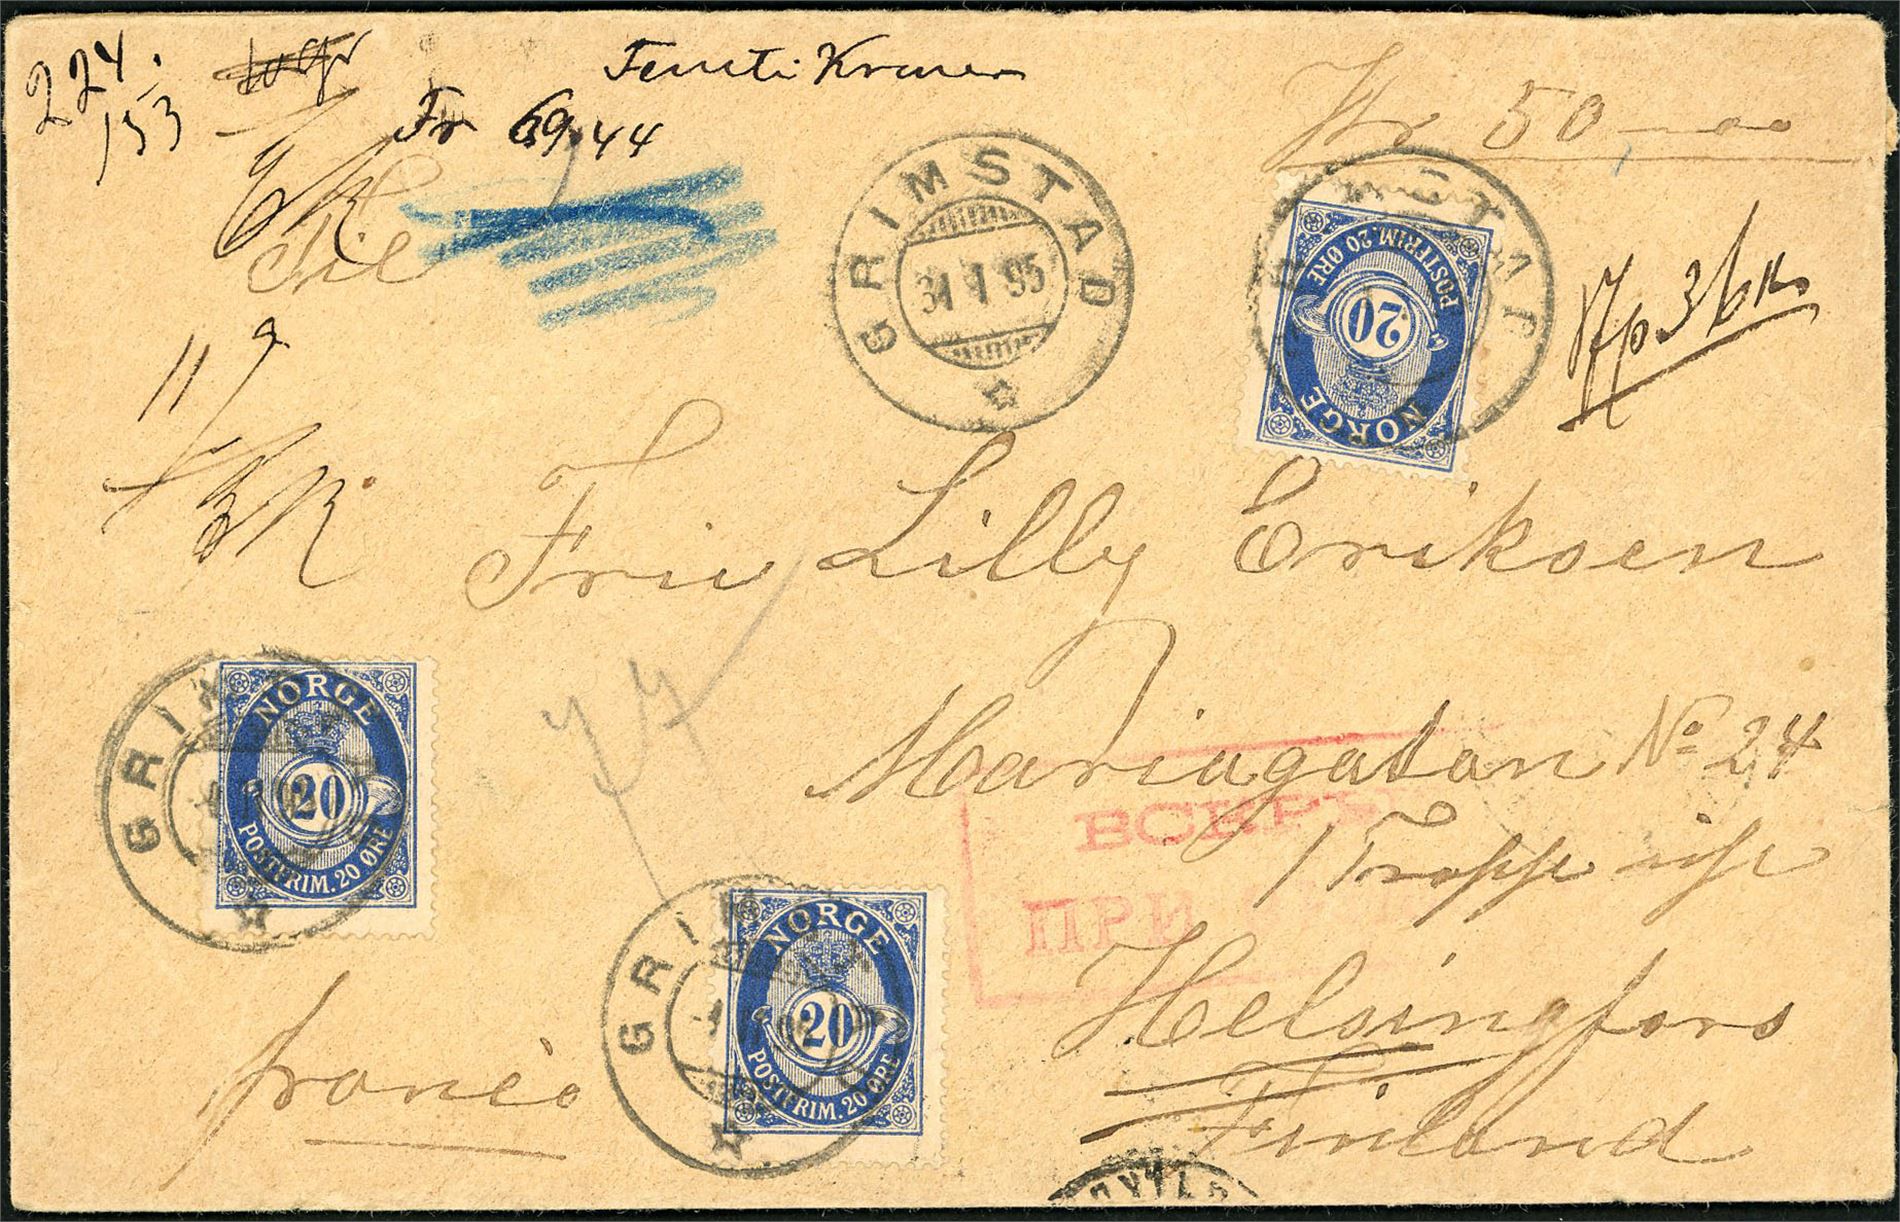 224.
153
Femti Kroner
Fr 69.44
Kr 50,00
Til
GRIMSTAD
31 1 95
NORGE
20
POSTFRIM. 20 ØRE
11
Fru Lilly Eriksen
Mariagatan No 24
1 Trappe
Helsingfors
Finland
ВСКРЫ
ПРИ
NORGE
20
POSTFRIM. 20 ØRE
GRIM
NORGE
20
POSTFRIM. 20 ØRE
GRI
franco